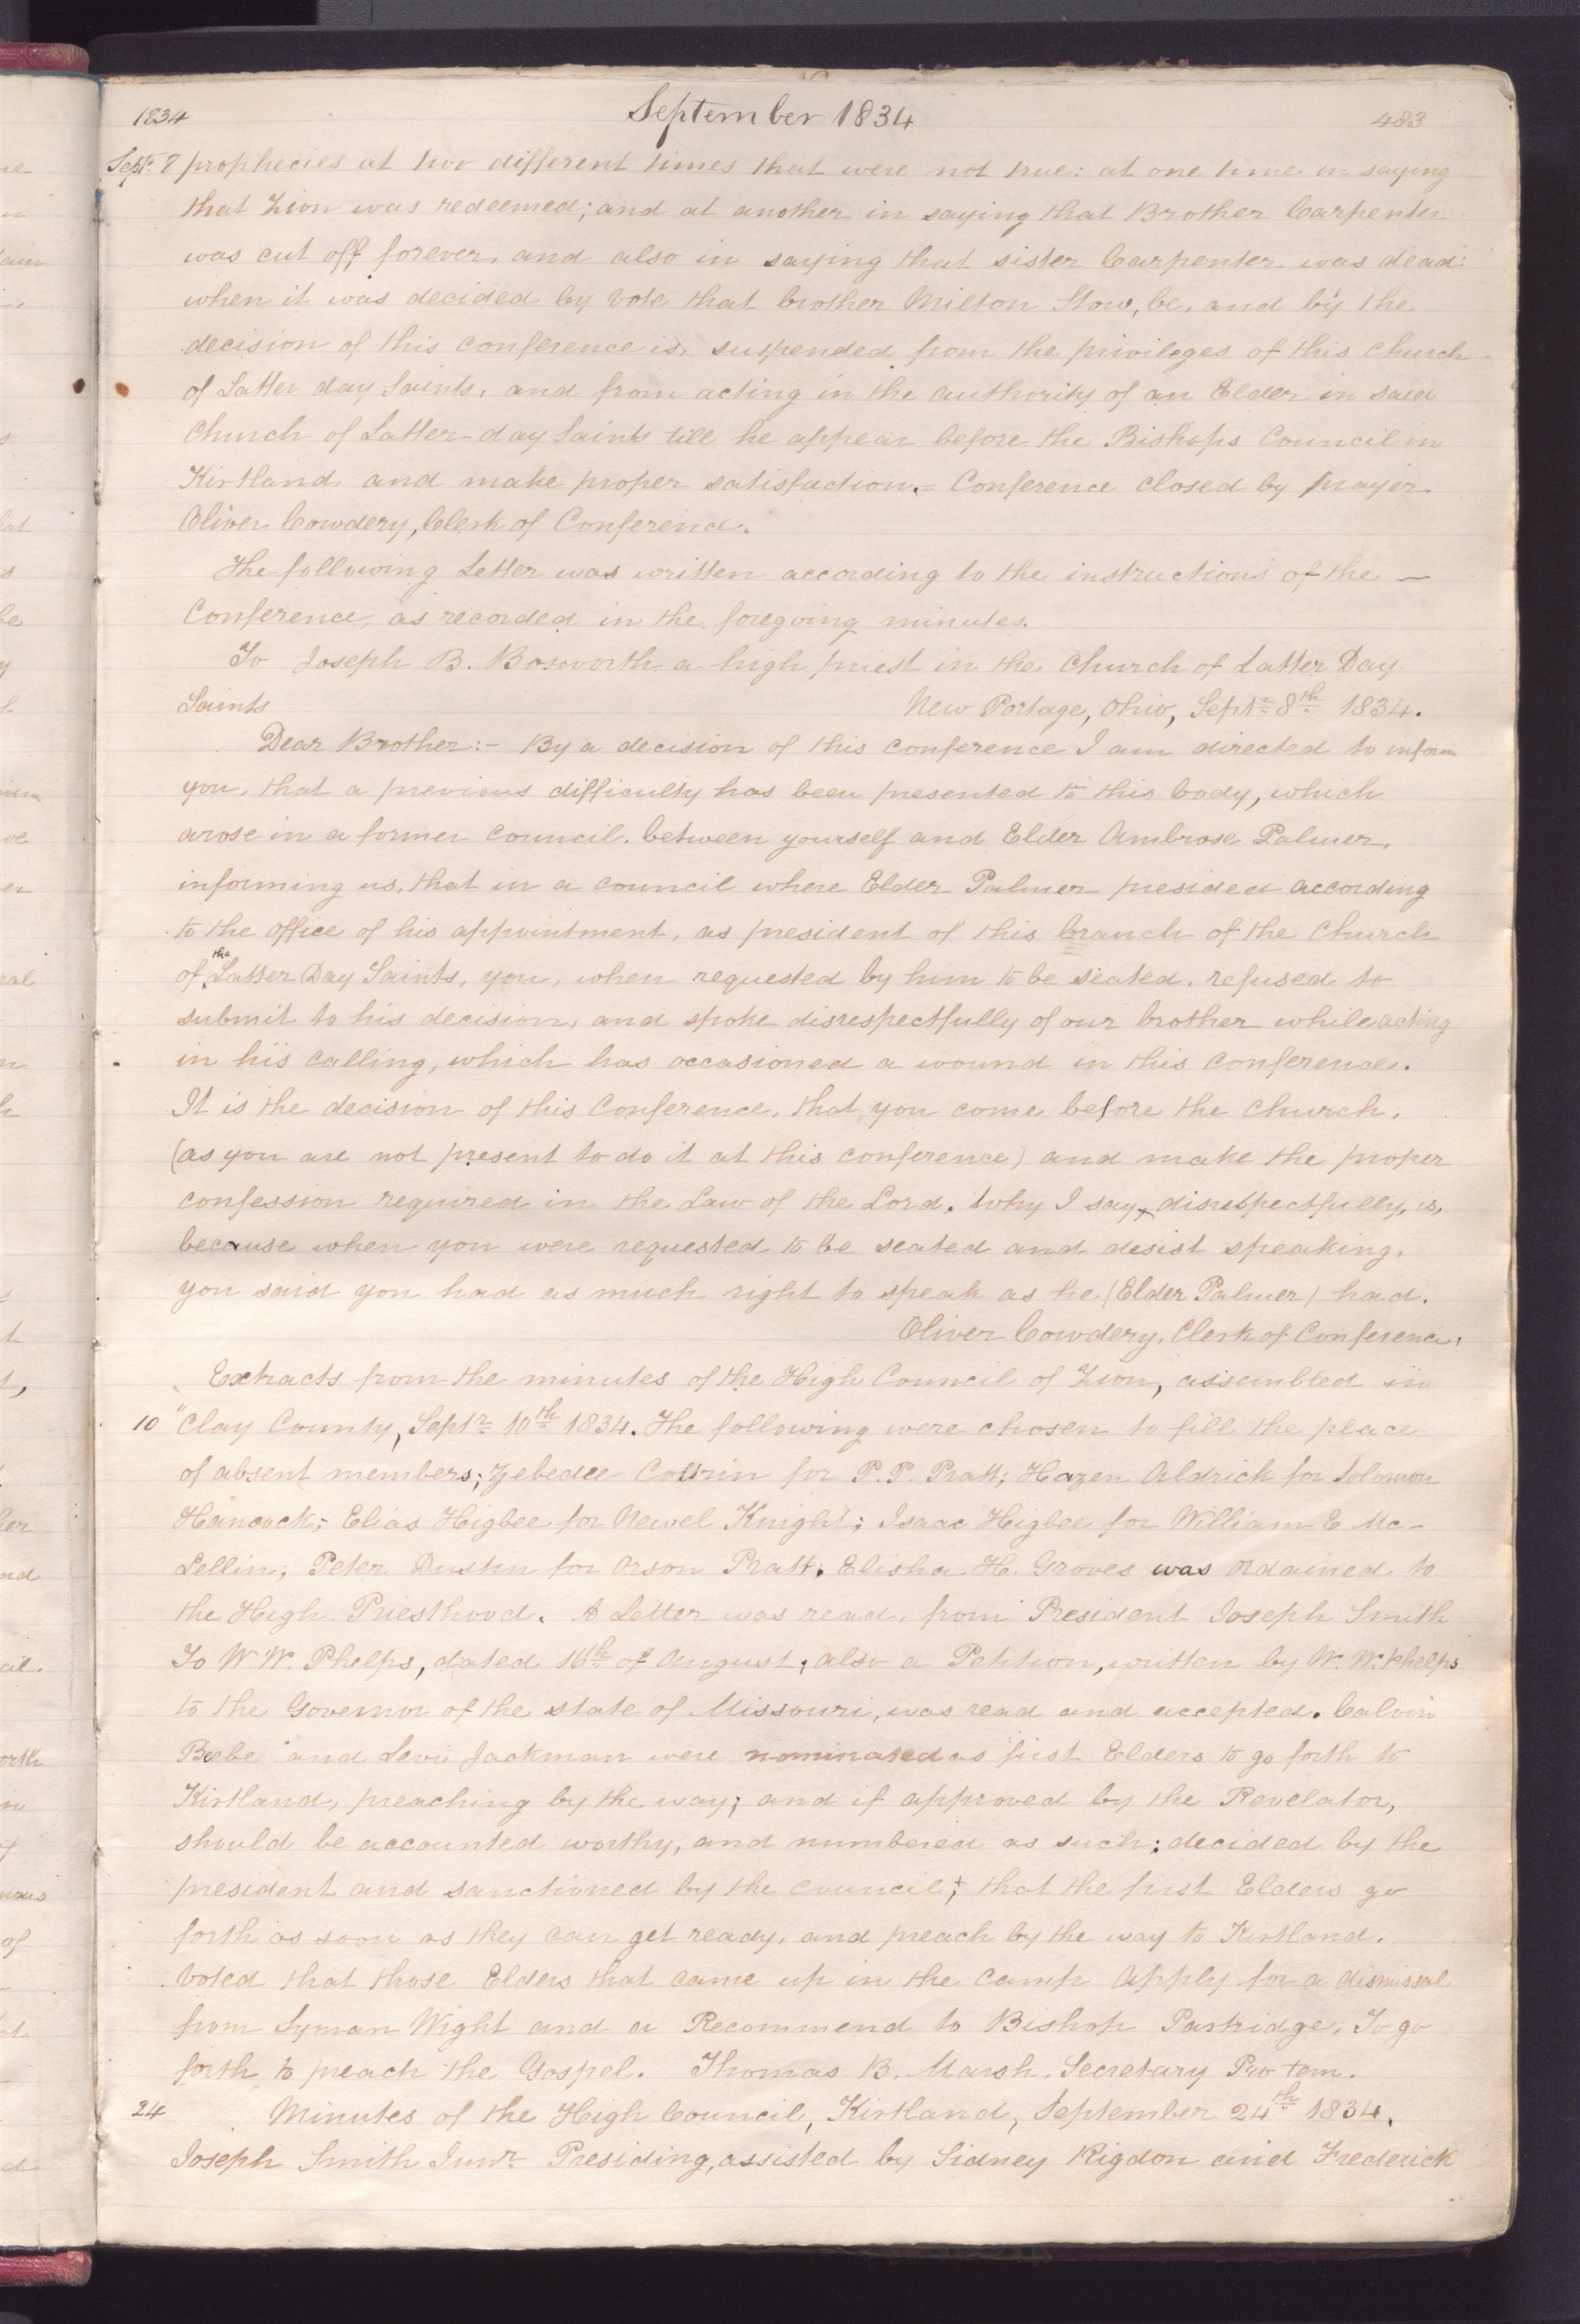 1834 September 1834 483
Sept. 8 prophecies at two different times that were not true: at one time in saying
that Zion was redeemed; and at another in saying that Brother Carpenter
was cut off forever, and also in saying that sister Carpenter was dead:
when it was decided by vote that brother Milton Stow, be, and by the
decision of this conference is, suspended from the privileges of this church
of Latter day Saints, and from acting in the authority of an Elder in said
Church of Latter-day Saints till he appear before the Bishops Council in
Kirtland and make proper satisfaction.= Conference closed by prayer.
Oliver Cowdery, Clerk of Conference.
The following Letter was written according to the instructions of the —
Conference, as recorded in the foregoing minutes.
To Joseph B. Bosworth a high priest in the Church of Latter Day
Saints New Portage, Ohio, Septr. 8th 1834.
Dear Brother:- By a decision of this conference I am directed to inform
you, that a previous difficulty has been presented to this body, which
arose in a former council, between yourself and Elder Ambrose Palmer,
informing us, that in a council where Elder Palmer presided according
to the office of his appointment, as president of this branch of the Church
of the Latter Day Saints, you, when requested by him to be seated, refused to
submit to his decision, and spoke disrespectfully of our brother while acting
in his calling, which has occasioned a wound in this conference.
It is the decision of this Conference, that you come before the church,
(as you are not present to do it at this conference) and make the proper
confession required in the Law of the Lord. Why I say, disrespectfully, is,
because when you were requested to be seated and desist speaking,
you said you had as much right to speak as he (Elder Palmer) had.
Oliver Cowdery, Clerk of Conference,
Extracts from the minutes of the High Council of Zion, assembled in
10 " Clay County, Septr. 10th 1834. The following were chosen to fill the place
of absent members; Zebedee Coltrin for P. P. Pratt; Hazen Aldrick for Solomon
Hancock; Elias Higbee for Newel Knight; Isaac Higbee for William E. Mc-
Lellin; Peter Dustin for Orson Pratt. Elisha H. Groves was ordained to
the High Priesthood. A Letter was read, from President Joseph Smith
To W. W. Phelps, dated 16th of August; also a Petition, written by W. W. Phelps
to the Governor of the state of Missouri, was read and accepted. Calvin
Beebe and Levi Jackman were nominated as "first Elders to go forth to
Kirtland, preaching by the way; and if approved by the Revelator,
should be accounted worthy, and numbered as such; decided by the
president and sanctioned by the council; that the first Elders go
forth as soon as they can get ready, and preach by the way to Kirtland.
Voted that those Elders that came up in the camp apply for a dismissal
from Lyman Wight and a Recommend to Bishop Partridge, To go
forth to preach the Gospel. Thomas B. Marsh, Secretary Pro tem.
24 Minutes of the High Council, Kirtland, September 24th 1834.
Joseph Smith Junr. Presiding, assisted by Sidney Rigdon and Frederick